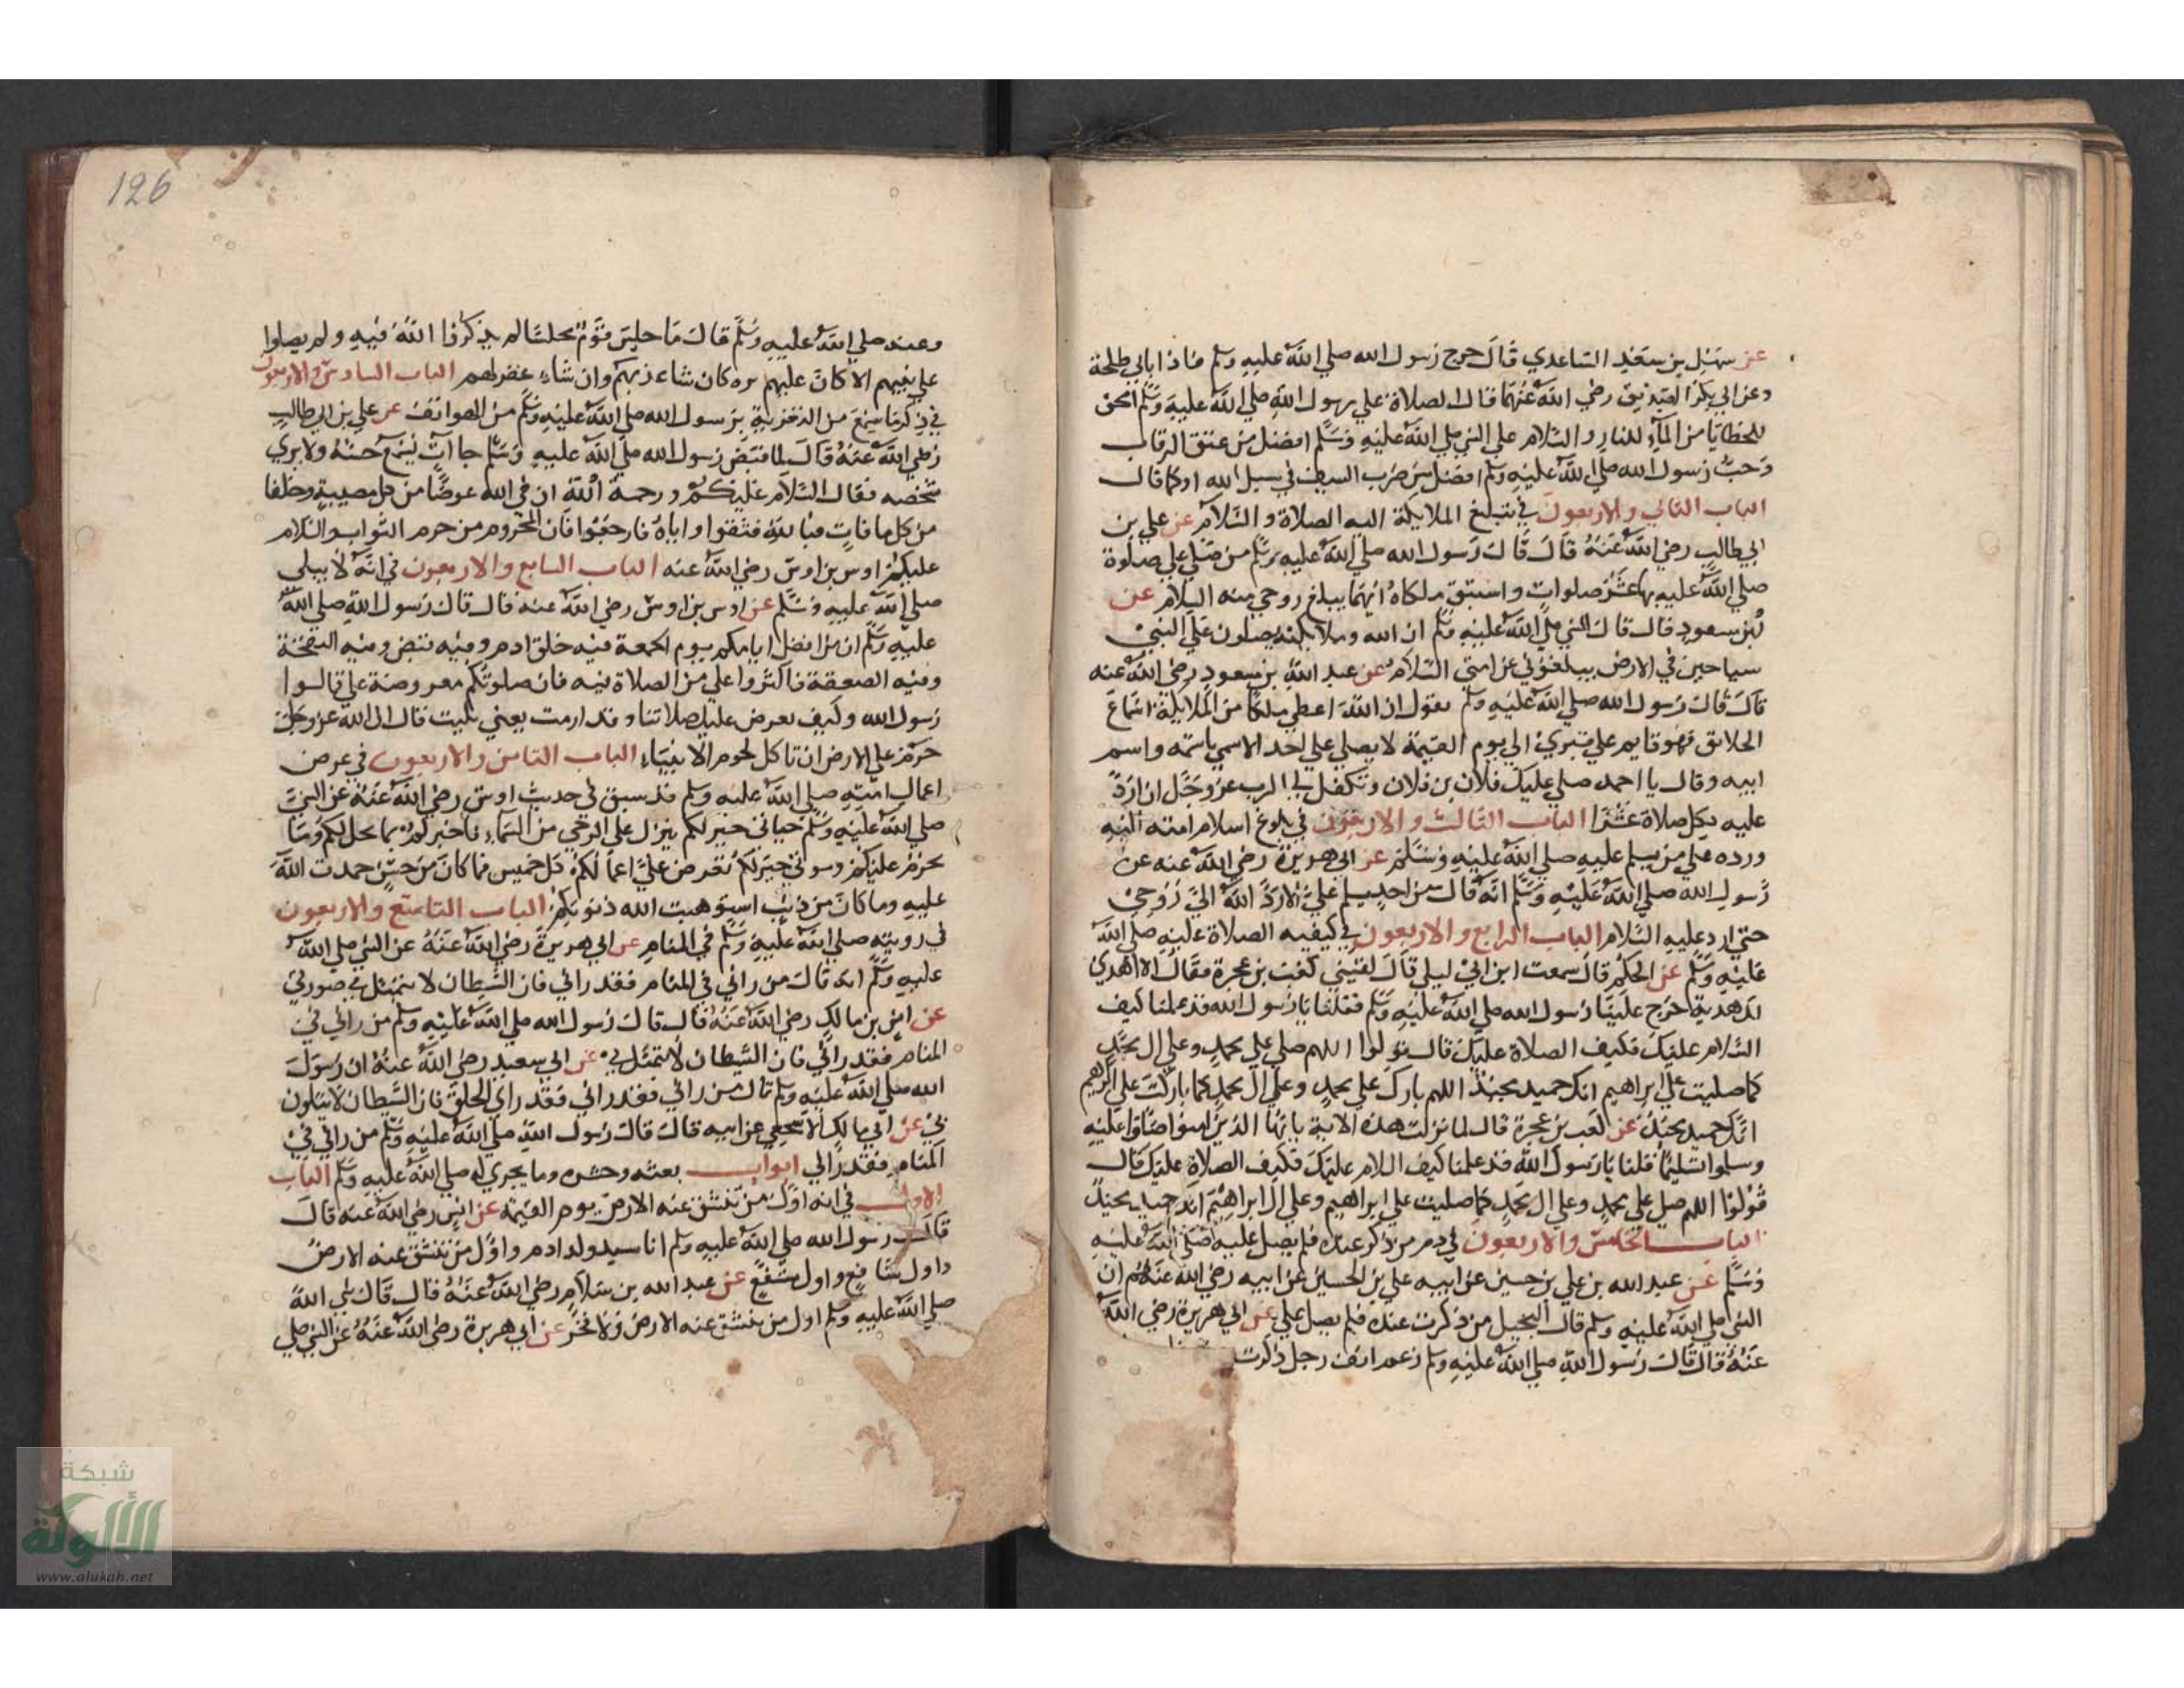 عن سهل بن سعد الساعدي قال خرج رسول الله صلي الله عليه وسلم فاذا بابي طلحة
وعن ابي بكر الصديق رضي الله عنهما قال الصلاة علي رسول الله صلي الله عليه وسلم امحق
للخطايا من المآء للنار والسلام علي النبي صلي الله عليه وسلم افضل من عتق الرقاب
وحب رسول الله صلي الله عليه وسلم افضل من ضرب السيف في سبيل الله او كما قال
الباب الثاني والاربعون في تبليغ الملايكة اليه الصلاة والسلام عن علي بن
ابي طالب رضي الله عنه قال قال رسول الله صلي الله عليه وسلم من صلي علي صلوة
صلي الله عليه بها عشر صلوات واستبق ملكاه ايهما يبلغ روحي منه السلام عن
ابن سعود قال قال النبي صلي الله عليه وسلم ان الله وملايكته يصلون علي النبي
سياحين في الارض يبلغوني عن امتي السلام عن عبد الله بن مسعود رضي الله عنه
قال قال رسول الله صلي الله عليه وسلم يقول ان الله اعطي ملكا من الملايكة اسماع
الخلائق فهو قايم علي قبري الي يوم القيمة لا يصلي علي احد الا سمي باسمه واسم
ابيه وقال يا احمد صلي عليك فلان بن فلان وتكفل لي الرب عز وجل ان ارد
عليه بكل صلاة عشرا الباب الثالث والاربعون في بلوغ اسلام امته اليه
ورده علي من يسلم عليه صلي الله عليه وسلم عن ابي هريرة رضي الله عنه عن
رسول الله صلي الله عليه وسلم انه قال من احد يسلم علي الا رد الله الي روحي
حتي ارد عليه السلام الباب الرابع والاربعون في كيفيه الصلاة عليه صلي الله
عليه وسلم عن الحكم قال سمعت ابن ابي ليلي قال لقيني كعب بن عجرة فقال الا اهدي
لك هدية خرج علينا رسول الله صلي الله عليه وسلم فقلنا يا رسول الله قد علمنا كيف
السلام عليك فكيف الصلاة عليك قال قولوا اللهم صلي علي محمد وعلي ال محمد
كما صليت علي ابراهيم انك حميد مجيد اللهم بارك علي محمد وعلي ال محمد كما باركت علي ابراهيم
انك حميد مجيد عن كعب بن عجرة قال لما نزلت هذه الاية يا ايها الذين امنوا صلوا عليه
وسلموا تسليما قلنا يا رسول الله قد علمنا كيف السلام عليك فكيف الصلاة عليك قال
قولوا اللهم صل علي محمد وعلي ال محمد كما صليت علي ابراهيم وعلي ال ابراهيم انك حميد مجيد
الباب الخامس والاربعون في ذم من ذكر عنده فلم يصل عليه صلي الله عليه
وسلم عن عبد الله بن علي بن حسين عن ابيه علي بن الحسين عن ابيه رضي الله عنهم ان
النبي صلي الله عليه وسلم قال البخيل من ذكرت عنده فلم يصل علي عن ابي هريرة رضي الله
عنه قال قال رسول الله صلي الله عليه وسلم رغم انف رجل ذكرت
126
وعنه صلي الله عليه وسلم قال ما جلس قوم مجلسا لم يذكروا الله فيه ولم يصلوا
علي نبيهم الا كان عليهم تره كان شاء ربهم وان شاء غفر لهم الباب السادس والاربعون
في ذكر ما سمع من التعزية برسول الله صلي الله عليه وسلم من الهواتف عن علي بن ابي طالب
رضي الله عنه قال لما قبض رسول الله صلي الله عليه وسلم جا آت يسمع حسه ولا يري
شخصه فقال السلام عليكم ورحمة الله ان في الله عوضا من كل مصيبة وخلفا
من كل ما فات فبالله فثقوا واياه فارجوا فان المحروم من حرم الثواب والسلام
عليكم اوس بن اوس رضي الله عنه الباب السابع والاربعون في انه لا يبلي
صلي الله عليه وسلم عن اوس بن اوس رضي الله عنه قال قال رسول الله صلي الله
عليه وسلم ان من افضل ايامكم يوم الجمعة فيه خلق ادم وفيه قبض وفيه النفخة
وفيه الصعقة فاكثروا علي من الصلاة فيه فان صلوتكم معروضة علي قالوا
رسول الله وكيف تعرض عليك صلاتنا وقد ارمت يعني بليت قال ان الله عز وجل
حرم علي الارض ان تاكل لحوم الانبياء الباب الثامن والاربعون في عرض
اعمال امته صلي الله عليه وسلم قد سبق في حديث اوس رضي الله عنه عن النبي
صلي الله عليه وسلم حياتي خير لكم ينزل علي الوحي من السماء فاخبركم بما يحل لكم وما
يحرم عليكم وموتي خير لكم تعرض علي اعمالكم كل خميس فما كان من حسن حمدت الله
عليه وما كان من ذنب استوهبت الله ذنوبكم الباب التاسع والاربعون
في رويته صلي الله عليه وسلم في المنام عن ابي هريرة رضي الله عنه عن النبي صلي الله
عليه وسلم انه قال من راني في المنام فقد راني فان الشيطان لا يتمثل في صورتي
عن انس بن مالك رضي الله عنه قال قال رسول الله صلي الله عليه وسلم من راني في
المنام فقد راني فان الشيطان لا يتمثل بي عن ابي سعيد رضي الله عنه ان رسول
الله صلي الله عليه وسلم قال من راني فقد راني فقد راي الحق فان الشيطان لا يتكون
بي عن ابي مالك الاشجعي عن ابيه قال قال رسول الله صلي الله عليه وسلم من راني في
المنام فقد راني ابواب بعثه وحشره وما يجري له صلي الله عليه وسلم الباب
الاول في انه اول من تنشق عنه الارض يوم القيمة عن انس رضي الله عنه قال
قال رسول الله صلي الله عليه وسلم انا سيد ولد ادم واول من تنشق عنه الارض
واول شافع واول مشفع عن عبد الله بن سلام رضي الله عنه قال قال نبي الله
صلي الله عليه وسلم اول من تنشق عنه الارض ولا فخر عن ابي هريرة رضي الله عنه عن النبي صلي
شبكة
الألوكة
www.alukah.net